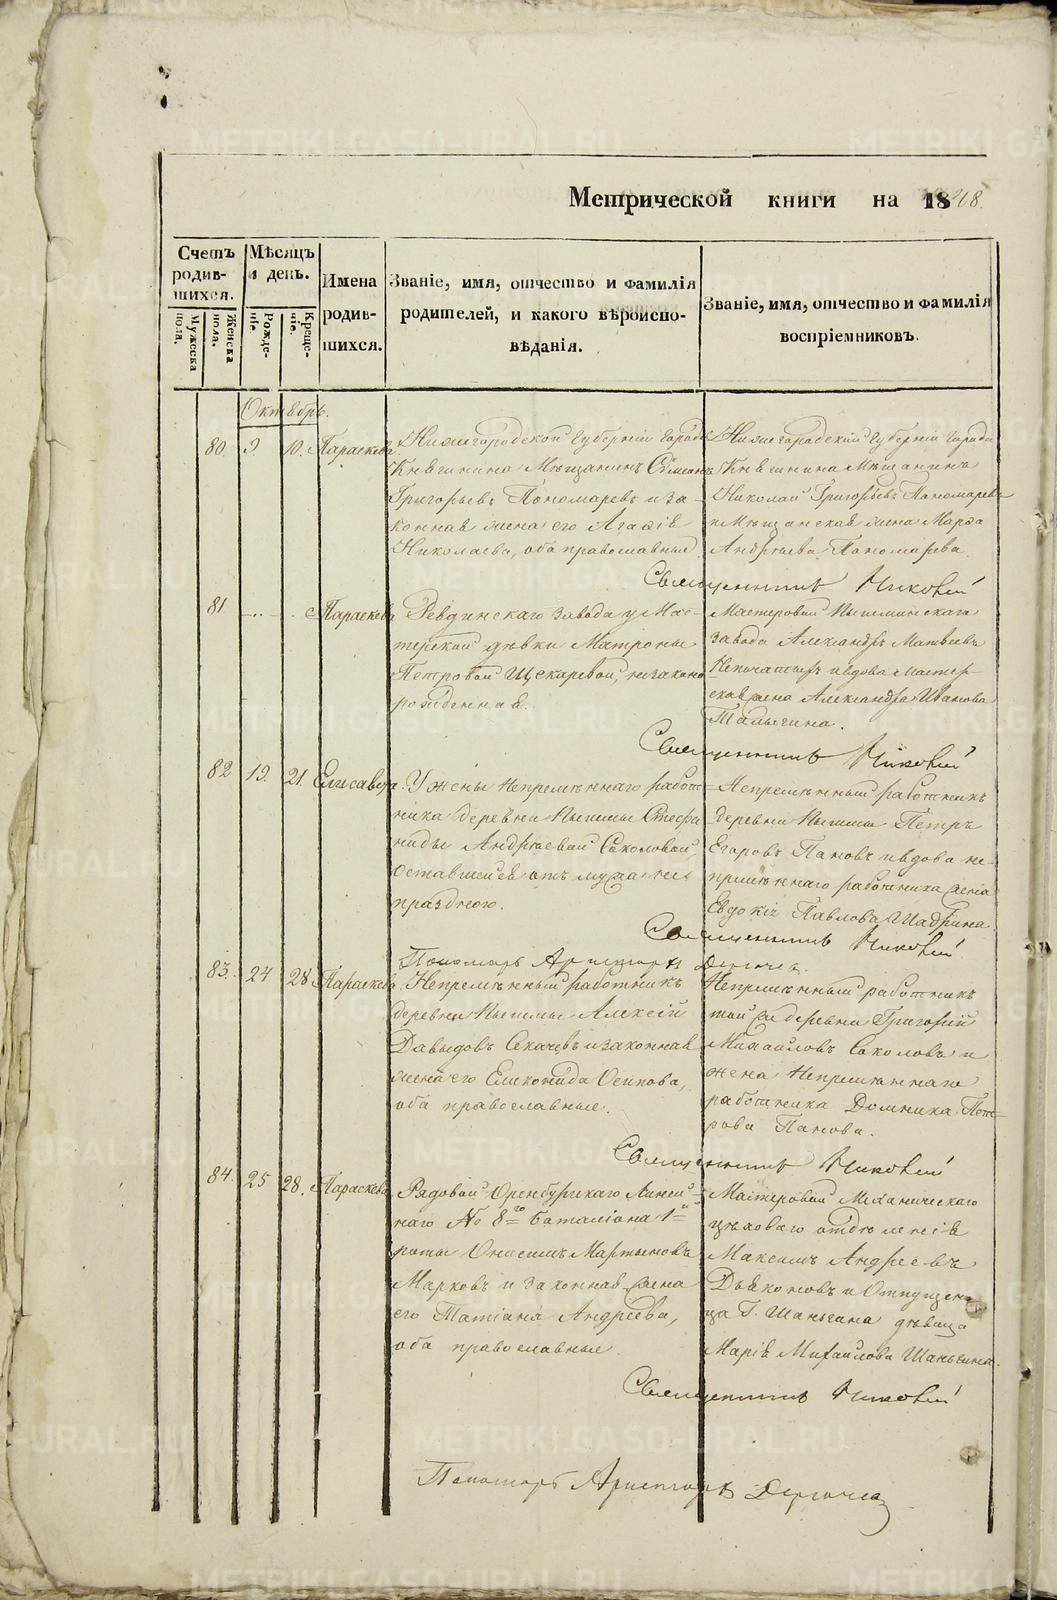 Метрической книги на 1848.
Счетъ родившихся.
Мужеска пола.
Женска пола.
Мѣсяцъ и день.
Рожденіе.
Крещеніе.
Имена родившихся.
Званіе, имя, отчество и фамилія
родителей, и какого вѣроиспо-
вѣданія.
Званіе, имя, отчество и фамилія
воспріемниковъ.
Октябрь.
80. 9. 10. Параскева.
Нижегородской Губерніи города
Княгинина Мѣщанинъ Сѵмеонъ
Григорьевъ Пономаревъ и за-
конная жена его Агафія
Николаева, оба православные
Нижегородской Губерніи города
Княгинина Мѣщанинъ
Николай Григорьевъ Пономаревъ
и Мѣщанская жена Марѳа
Андреева Пономарева.
Священникъ
81 Параскева
Ревдинскаго завода у Мас-
терской дѣвки Матроны
Петровой Щекаревой, незаконо
рожденная.
Мастеровой Пышминскаго
завода Александръ Матвѣевъ
и вдова мастер-
ская жена Александра Иванова
Талыгина.
Священникъ
82 19. 21. Елисавета.
У жены Непремѣннаго работ-
ника деревни Пышмы Стефа
ниды Андреевой Соколовой,
оставшейся отъ мужа не
праздною.
Непремѣнный работникъ
деревни Пышмы Петръ
Егоровъ Пановъ и вдова не-
премѣннаго работника жена
Евдокія Павлова Шадрина
Священникъ
Пономарь Аристархъ
83. 24 28 Параскева.
Непремѣнный работникъ
деревни Пышмы Алексій
Давыдовъ Секачевъ и законная
жена его Еликонида Осипова,
оба православные.
Непремѣнный работникъ
той же деревни Григорій
Михайловъ Соколовъ и
жена Непремѣннаго
работника Домника Пет-
рова Панова.
Священникъ
84. 25 28. Параскева
Рядовой Оренбургскаго Линей-
наго № 8го баталіона 1й
роты Онисимъ Мартыновъ
Марковъ и законная жена
его Татіана Андреева,
оба православные.
Мастеровой Механическаго
цѣховаго отдѣленія
Максимъ Андреевъ
Дьяконовъ и Отпущен
ца Г. Шаньгина дѣвица
Марія Михайлова Шаньгина.
Священникъ
Пономарь Аристархъ
METRIKI.GASO-URAL.RU